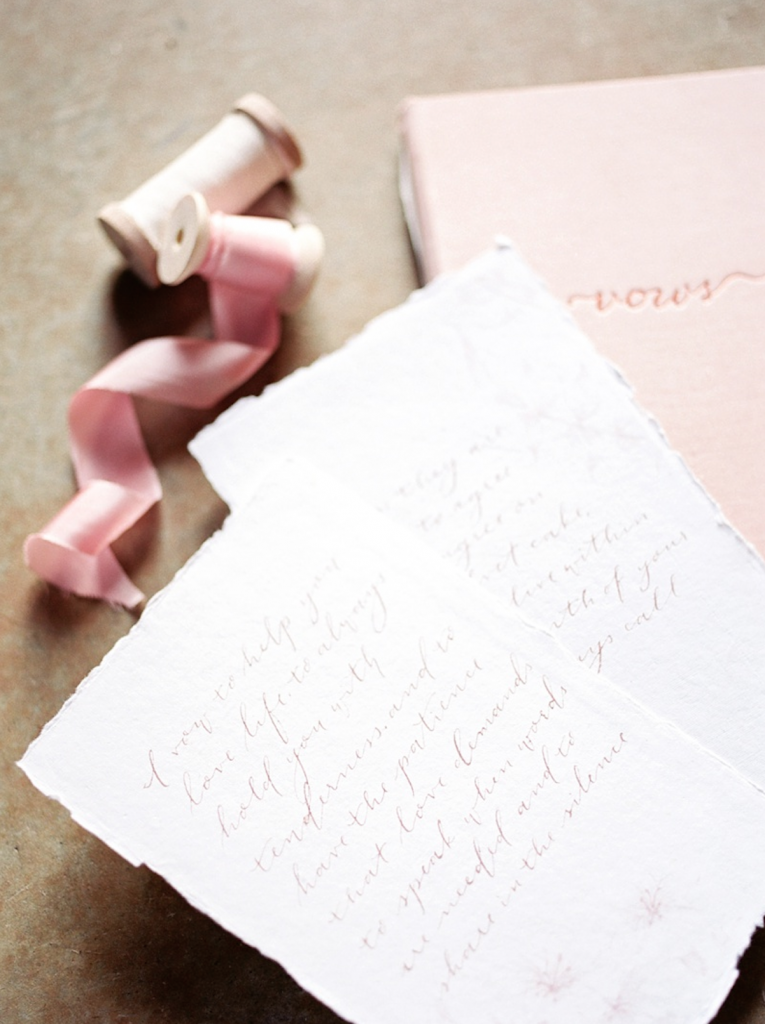 vows
they are
to agree
agree on
cake,
live within
of your
call
I vow to help you
love life, to always
hold you with
tenderness, and to
have the patience
that love demands
to speak when words
are needed and to
share in the silence